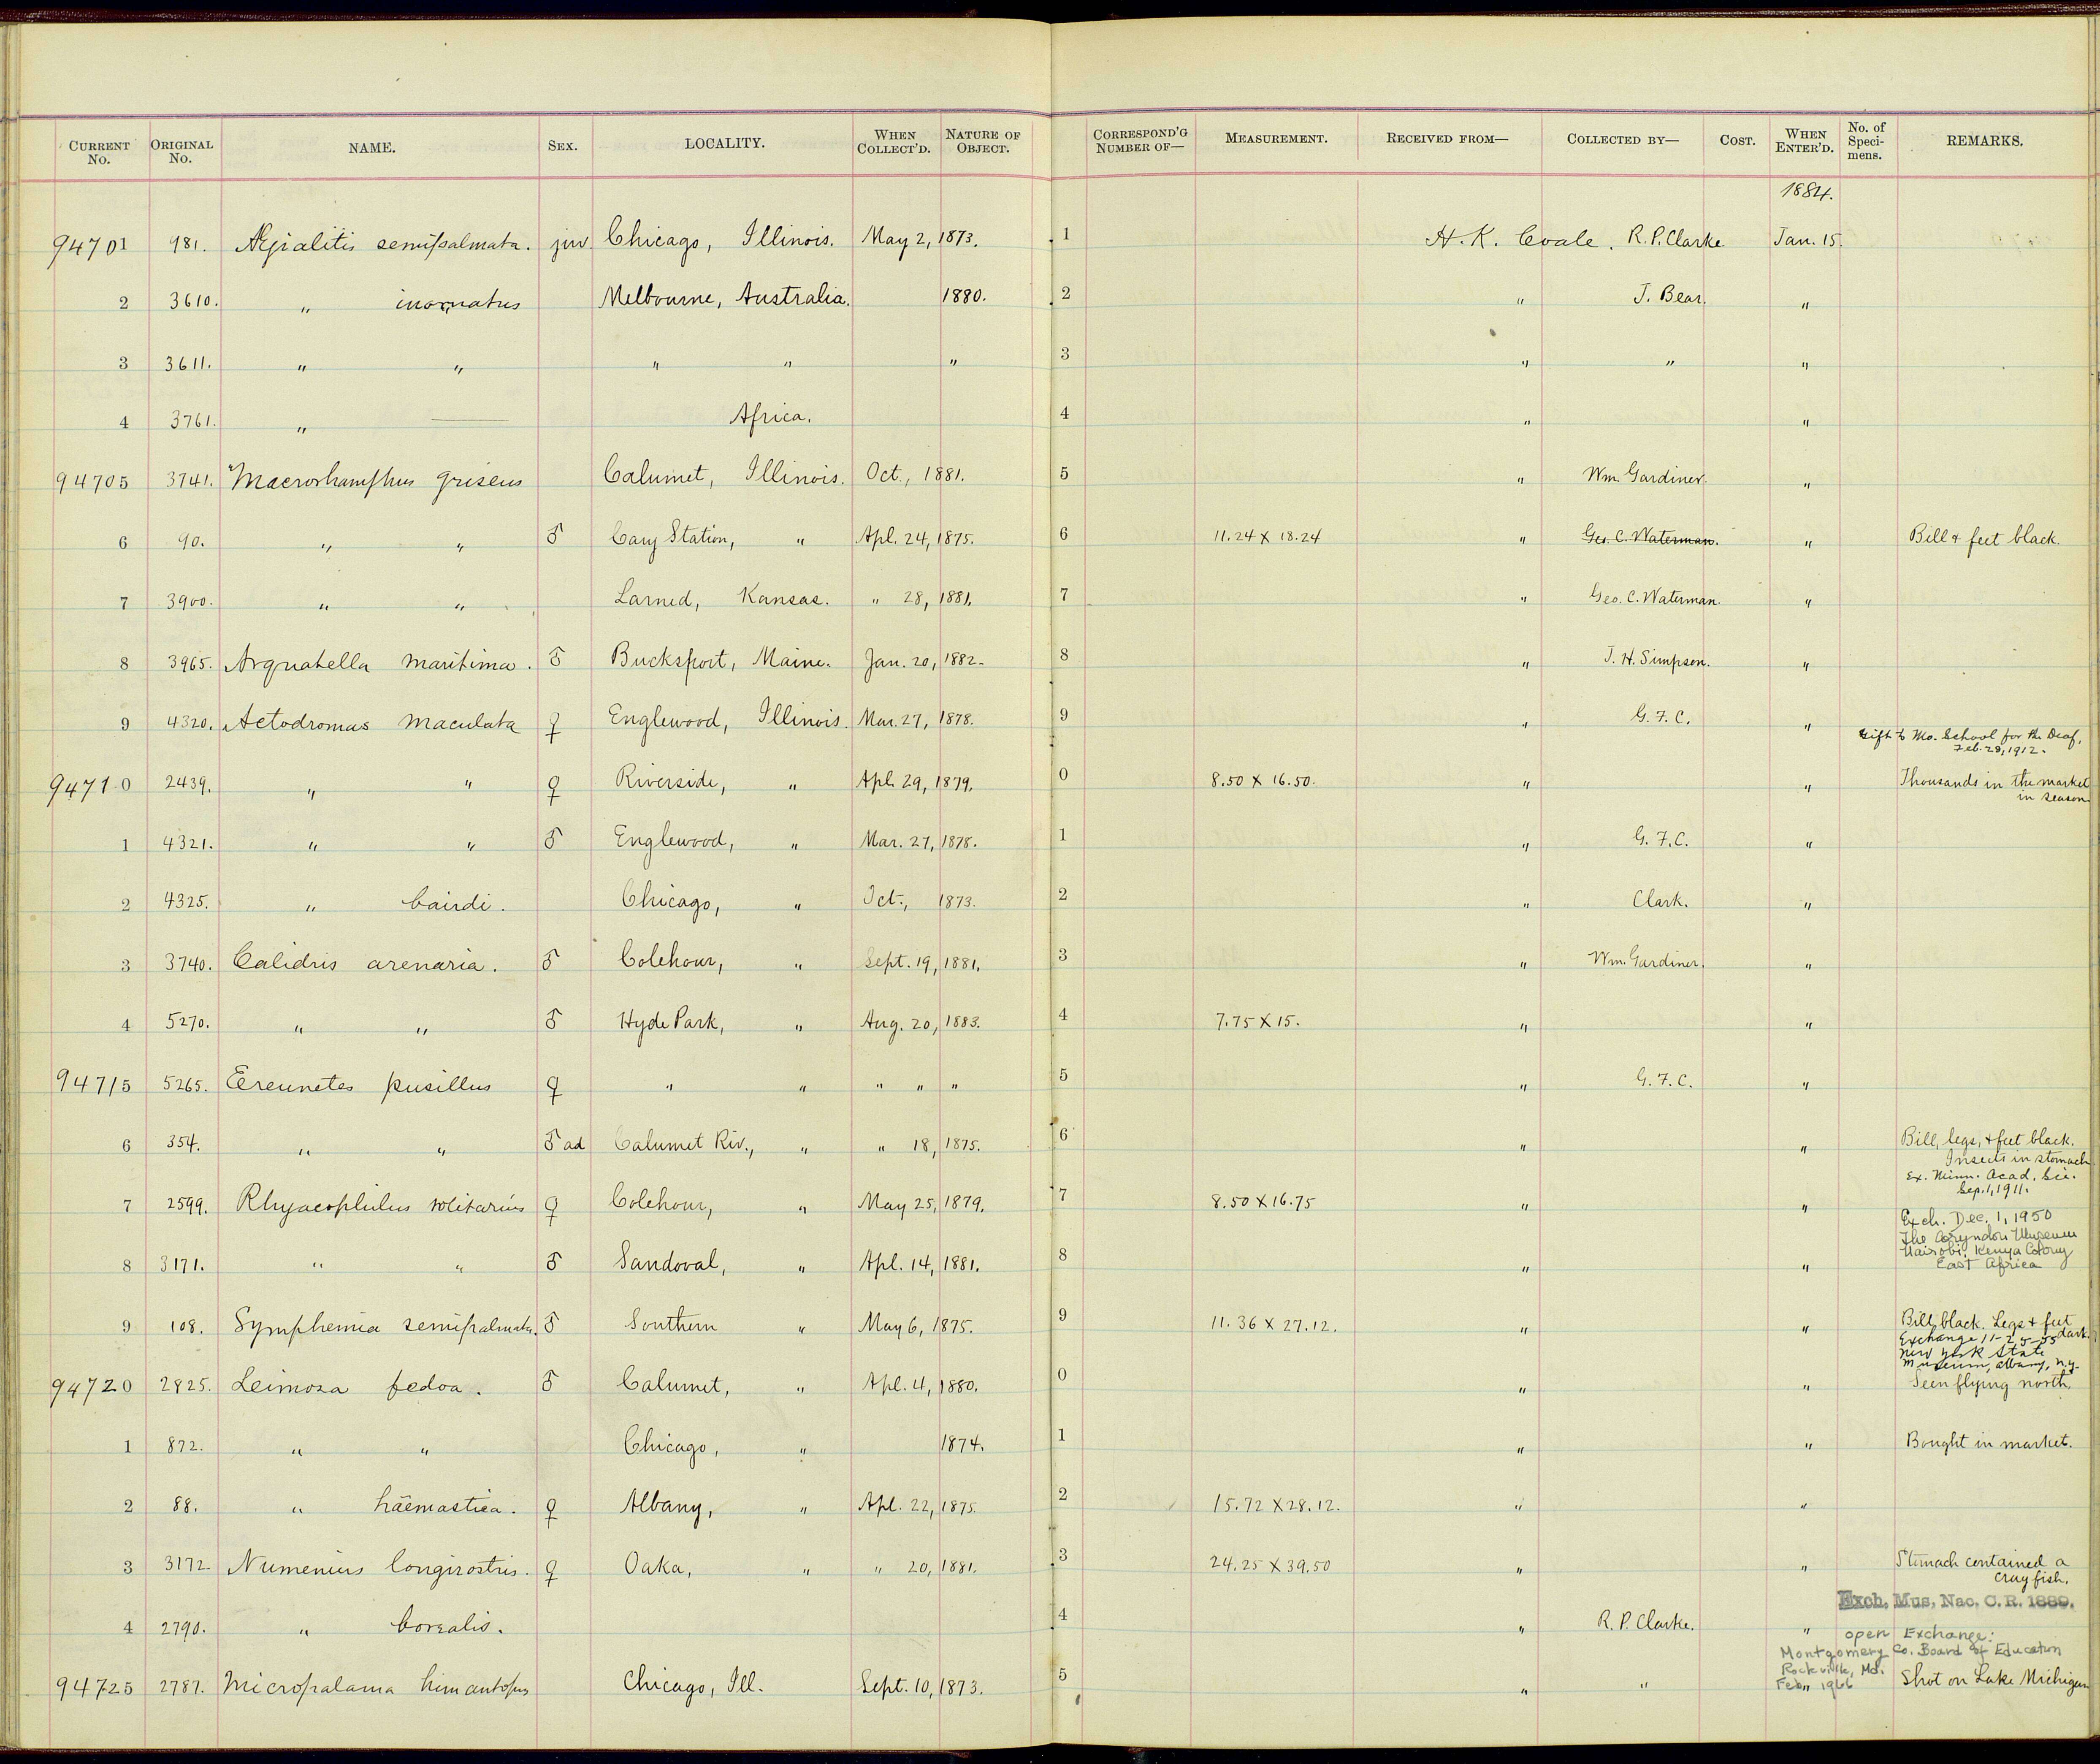 CURRENT No. ORIGINAL No. NAME. SEX. LOCALITY. WHEN COLLECT'D. NATURE OF OBJECT. CORRESPOND'G NUMBER OF— MEASUREMENT. RECEIVED FROM— COLLECTED BY— COST. WHEN ENTER'D. No. of Speci-mens. REMARKS.
1884.
94701 981. Ægialitis semipalmata. juv. Chicago, Illinois. May 2, 1873. 1 H. K. Coale. R. P. Clarke Jan. 15.
2 3610. " inornatus Melbourne, Australia. 1880. 2 " J. Bear. "
3 3611. " " " " " 3 " " "
4 3761. " —— Africa. 4 " "
94705 3741. Macrorhamphus griseus Calumet, Illinois. Oct., 1881. 5 " Wm. Gardiner. "
6 90. " " ♂ Cary Station, " Apl. 24, 1875. 6 11.24 X 18.24 " Geo. C. Waterman. " Bill & feet black.
7 3900. " " Larned, Kansas. " 28, 1881. 7 " Geo. C. Waterman. "
8 3965. Arquatella maritima. ♂ Bucksport, Maine. Jan. 20, 1882. 8 " J. H. Simpson. "
9 4320. Actodromas maculata ♀ Englewood, Illinois. Mar. 27, 1878. 9 " G. F. C. "
Gift to Mo. School for the Deaf,
Feb. 28, 1912.
94710 2439. " " ♀ Riverside, " Apl. 29, 1879. 0 8.50 X 16.50. " " Thousands in the market
in season
1 4321. " " ♂ Englewood, " Mar. 27, 1878. 1 " G. F. C. "
2 4325. " bairdi. Chicago, " Oct., 1873. 2 " Clark. "
3 3740. Calidris arenaria. ♂ Colehour, " Sept. 19, 1881. 3 " Wm. Gardiner. "
4 5270. " " ♂ Hyde Park, " Aug. 20, 1883. 4 7.75 X 15. " "
94715 5265. Ereunetes pusillus ♀ " " " " " 5 " G. F. C. "
6 354. " " ♂ ad Calumet Riv., " " 18, 1875. 6 " " Bill, legs, & feet black.
Insects in stomach
Ex. Minn. Acad. Sci.
Sep. 1, 1911.
7 2599. Rhyacophilus solitarius ♀ Colehour, " May 25, 1879. 7 8.50 X 16.75 " "
Exch. Dec. 1, 1950
The Coryndon Museum
Nairobi, Kenya Colony
East Africa
8 3171. " " ♂ Sandoval, " Apl. 14, 1881. 8 " "
9 108. Symphemia semipalmata. ♂ Southern " May 6, 1875. 9 11.36 X 27.12. " " Bill black. Legs & feet
dark.
Exchange 11-25-55
New York State
Museum, Albany, N.Y.
94720 2825. Leimosa fedoa. ♂ Calumet, " Apl. 4, 1880. 0 " " Seen flying north.
1 872. " " Chicago, " 1874. 1 " " Bought in market.
2 88. " haemastica. ♀ Albany, " Apl. 22, 1875. 2 15.72 X 28.12. " "
3 3172 Numenius longirostris. ♀ Oaka, " " 20, 1881. 3 24.25 X 39.50 " " Stomach contained a
crayfish.
Exch. Mus. Nac. C. R. 1889.
4 2790. " borealis. 4 " R. P. Clarke. "
open Exchange:
Montgomery Co. Board of Education
Rockville, Md.
Feb. 1966
94725 2787. Micropalama himantopus Chicago, Ill. Sept. 10, 1873. 5 " " " Shot on Lake Michigan